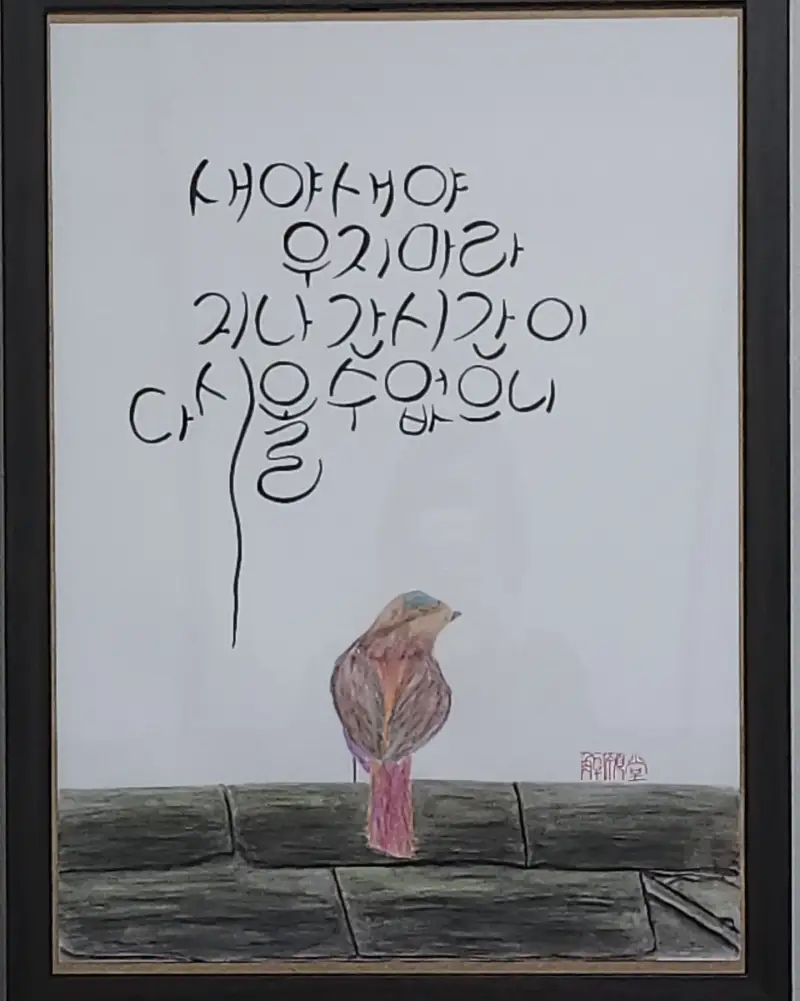 새야새야
우지마라
지나간시간이
다시올수없으니
解願堂